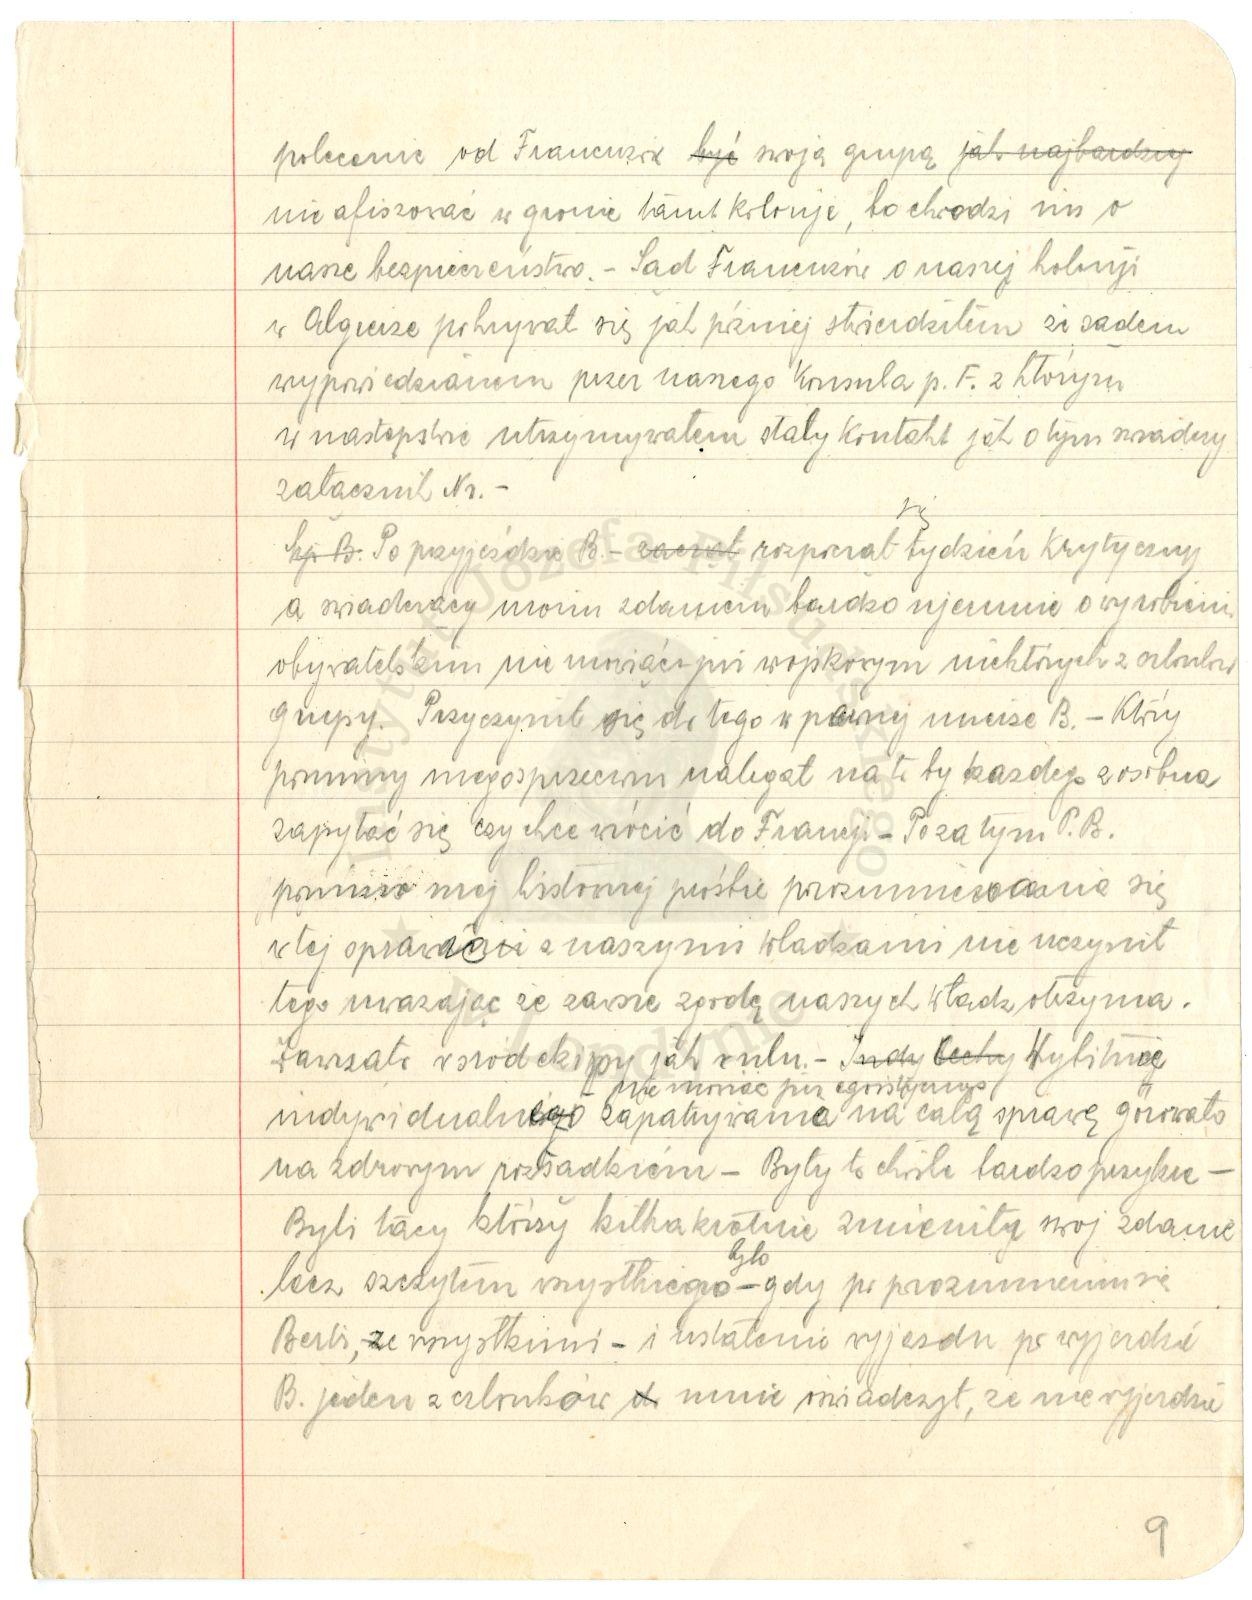 polecenie od Francuzów być swoją grupą jak najbardziej
nie afiszować w gronie tamt kolonje, bo chodzi im o
nasze bezpieczeństwo. - Sąd Francuzów o naszej kolonji
w Algierze pokrywał się jak później stwierdziłem ze sądem
wypowiedzianem przez naszego Konsula p. F. z którym
w następstwie utrzymywałem stały kontakt jak o tym swiadczy
załącznik Nr. -
się
B. Po przyjeździe B. - zaczął rozpoczął tydzień krytyczny
a swiadczący moim zdaniem bardzo ujemnie o wyrobieniu
obywatelskim nie mowiąc już wojskowym niektórych z członków
grupy. Przyczynił się do tego w pewnej mierze B. - Który
pomimo mego sprzeciwu nalegał na to by każdego z osobna
zapytać się czy chce wrócić do Francji - Poza tym P. B.
pomimo mej prośbie porozumiewania się
w tej sprawie z naszymi władzami nie uczynił
tego uważając że zawsze zgodę naszych władz otrzyma.
Zawrzało wsrod ekipy jak w ulu. - Indy Cechy Wybitnie
nie mowiąc już egoistycznego
indywidualnego zapatrywania na całą sprawę górowało
na zdrowym rozsądkiem - Były to chwile bardzo przykre -
Byli tacy którzy kilkakrotnie zmieniły swoj zdanie
było
lecz szczytem wszystkiego - gdy po porozumieniu się
Berli, ze wszystkimi - i ustalenie wyjazdu po wyjeździe
B. jeden z członków do mnie oświadczył, że nie wyjerdzie
9
Instytut Józefa Piłsudskiego
w Londynie